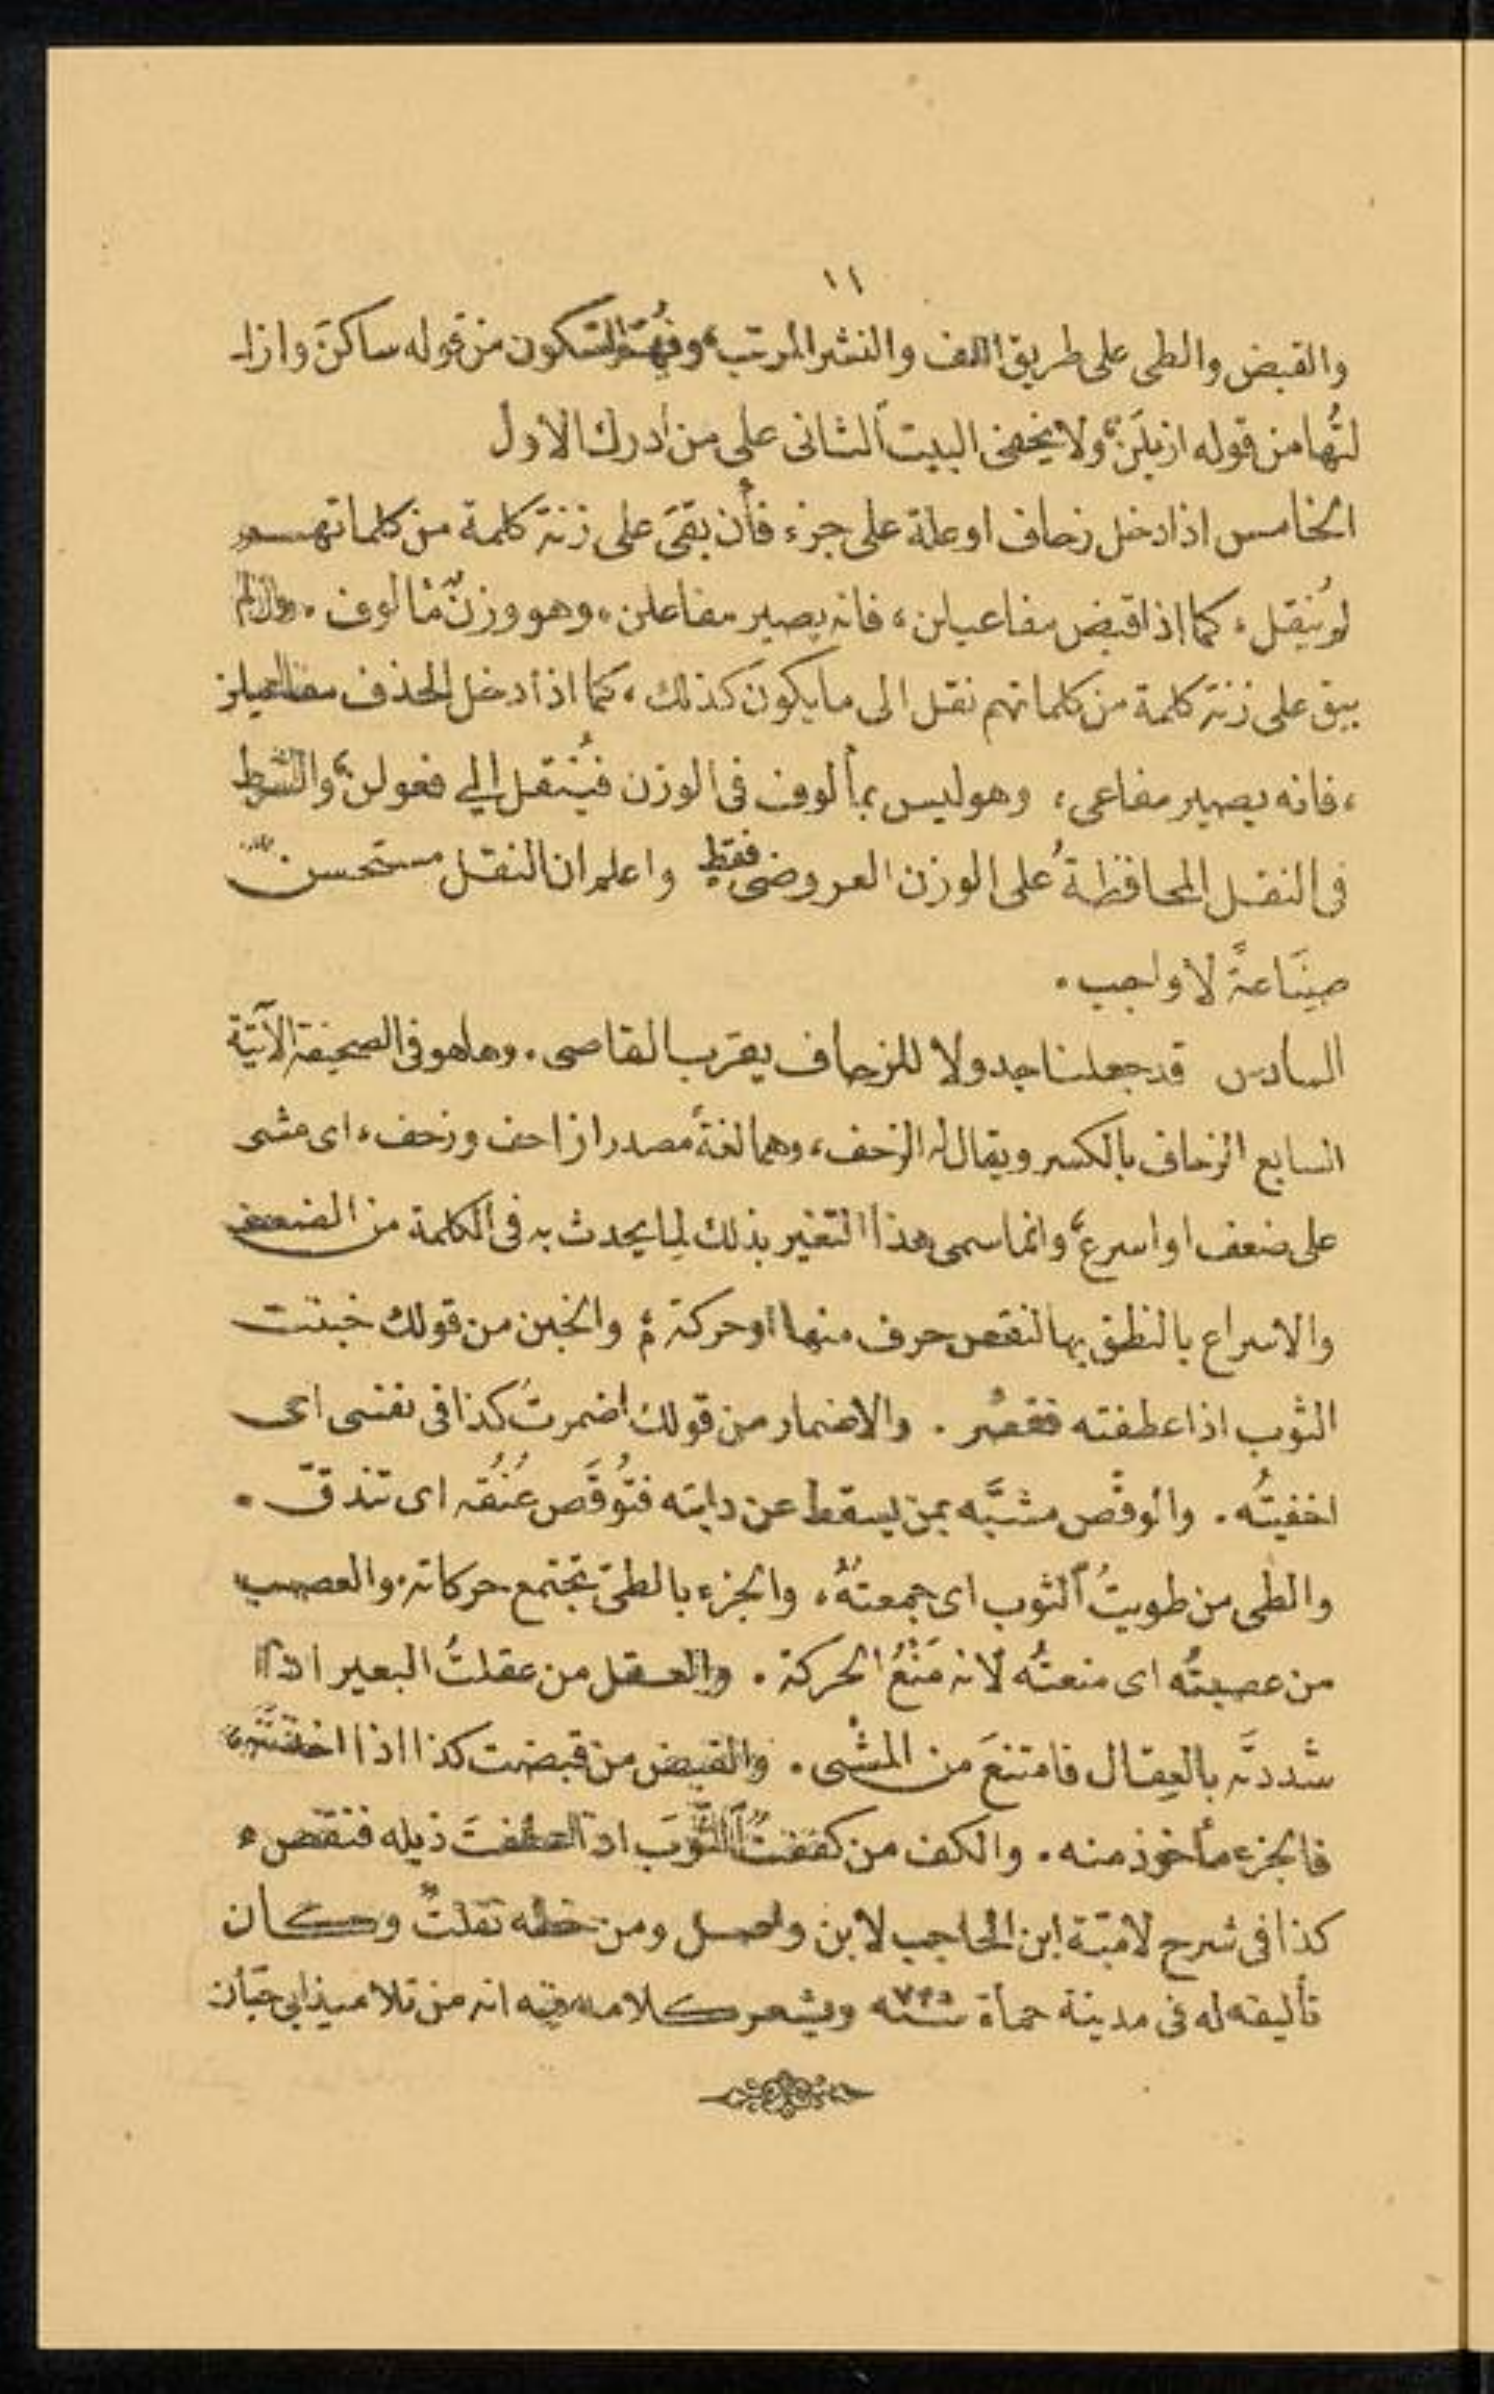 ١١
والقبض والطى على طريق اللف والنشر المرتب، وفُهِمَ السكون من قوله ساكنَ وازا
لتُها من قوله ازيلَنْ، ولا يخفى البيت الثانى على من أدرك الاول
الخامس اذا دخل زحاف او علة على جزء فأن بقىَ على زنة كلمة من كلماتهم
لم يُنقل، كما اذا قبض مفاعيلن، فانه يصير مفاعلن، وهو وزنٌ مألوف. وان لم
يبق على زنة كلمة من كلماتهم نقل الى ما يكون كذلك، كما اذا دخل الحذف مفاعيلن
، فانه يصير مفاعى، وهو ليس بمألوف فى الوزن فيُنقل الى فعولن، والشرط
فى النقل المحافظةُ على الوزن العروضى فقط واعلم ان النقل مستحسن
صِنَاعةً لا واجب.
السادس قد جعلنا جدولا للزحاف يقرب القاصى. وها هو فى الصحيفة الآتية
السابع الزحاف بالكسر ويقال له الزحف، وهما لغةً مصدرا زاحف وزحف، اى مشى
على ضعف او اسرع، وانما سمى هذا التغير بذلك لِما يحدث به فى الكلمة من الضعف
والاسراع بالنطق بها لنقص حرف منها او حركة، والخبن من قولك خبنت
الثوب اذا عطفته فقصُر. والاضمار من قولك اضمرتُ كذا فى نفسى اى
اخفيتُه. والوقْص مشبَّه بمن يسقط عن دابته فتُوقَص عُنُقه اى تندقّ.
والطى من طويتُ الثوب اى جمعتُهُ، والجزء بالطىّ تجتمع حركاته. والعصب
من عصبتُه اى منعتُه لانه مَنْعُ الحركة. والعقل من عقلتُ البعير اذا
شددتَه بالعِقال فامتنعَ من المشْى. والقبض من قبضت كذا اذا اخذته،
فالجزء مأخوذ منه. والكف من كففتُ الثوبَ اذا عطفتَ ذيله فنقص،
كذا فى شرح لاميّة ابن الحاجب لابن واصل ومن خطه نقلتُ وكان
تأليفه له فى مدينة حماة سنه ويشعر كلامه فيه انه من تلاميذ ابى حيّان